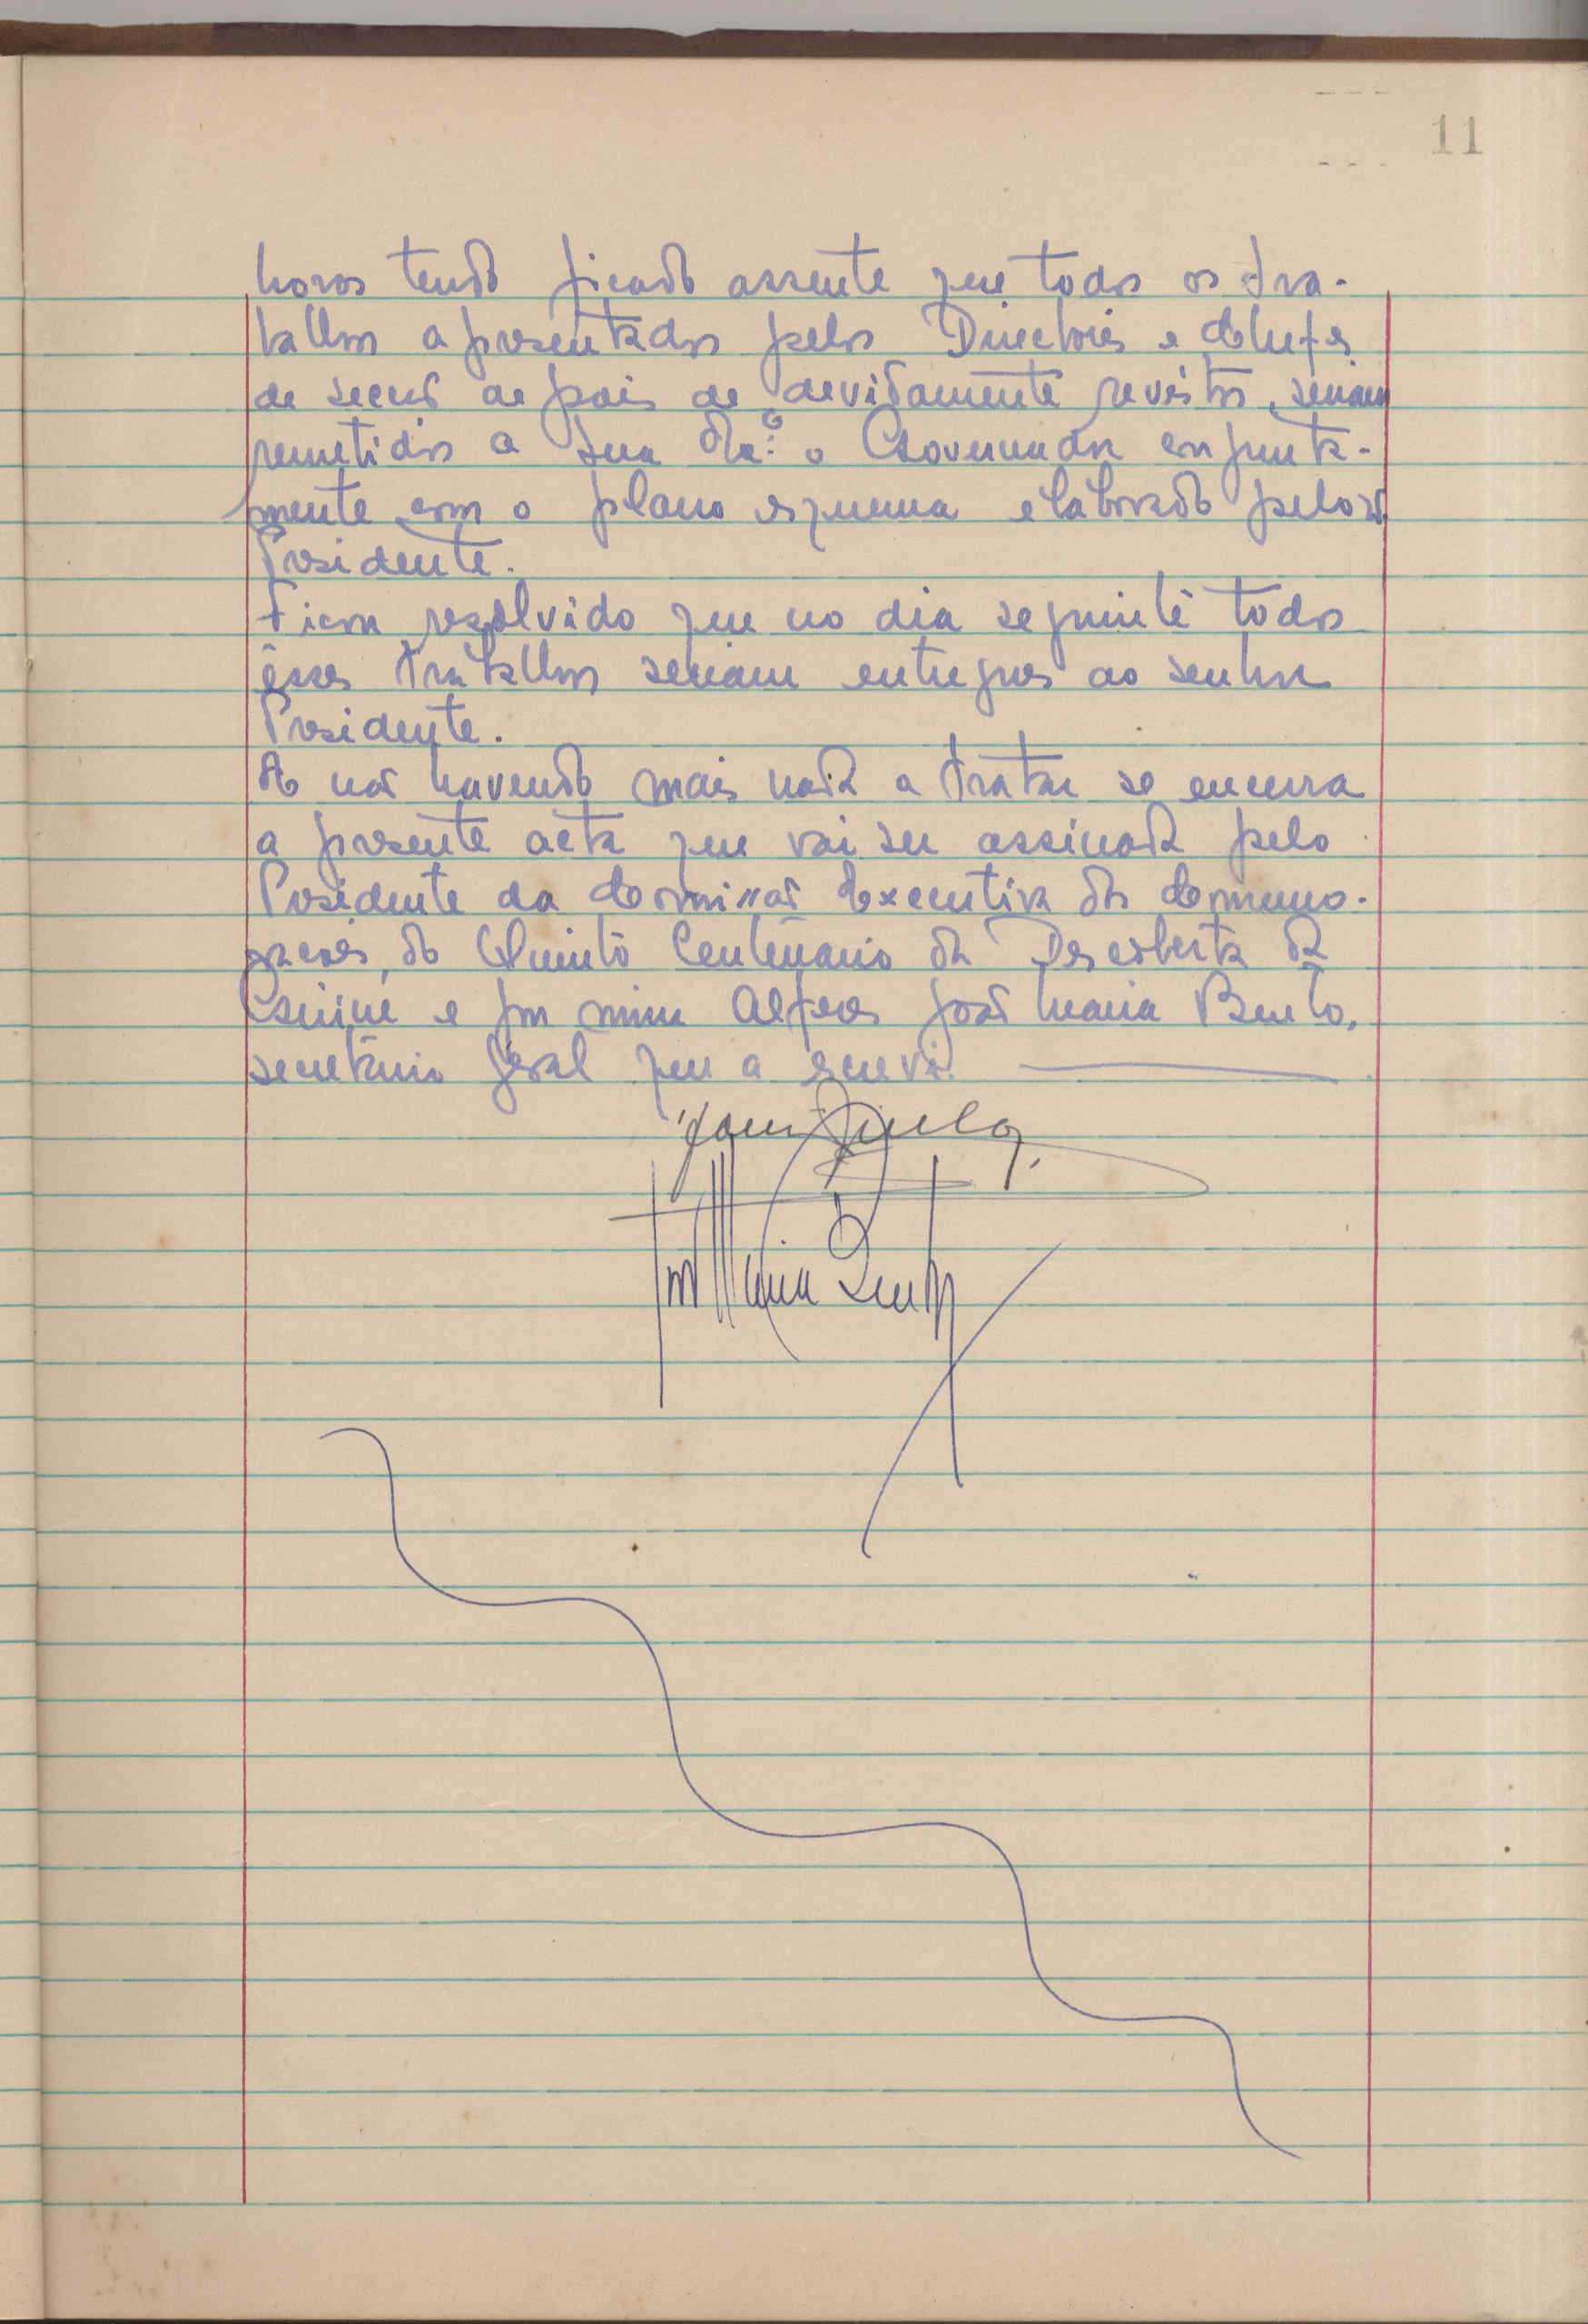 11
horas tendo ficado assente que todos os tra-
balhos apresentados pelos Directores e Chefes
de secção depois de devidamente revistos, seriam
remetidos a Sua Ex.ª o Governador conjunta-
mente com o plano esquema elaborado pelo Sr.
Presidente.
Ficou resolvido que no dia seguinte todos
êsses trabalhos seriam entregues ao senhor
Presidente.
E não havendo mais nada a tratar se encerra
a presente acta que vai ser assinada pelo
Presidente da Comissão Executiva das Comemo-
rações, do Quinto Centenário da Descoberta da
Guiné e por mim Alferes José Maria Bento,
secretário geral que a escrevi.
José Maria Bento